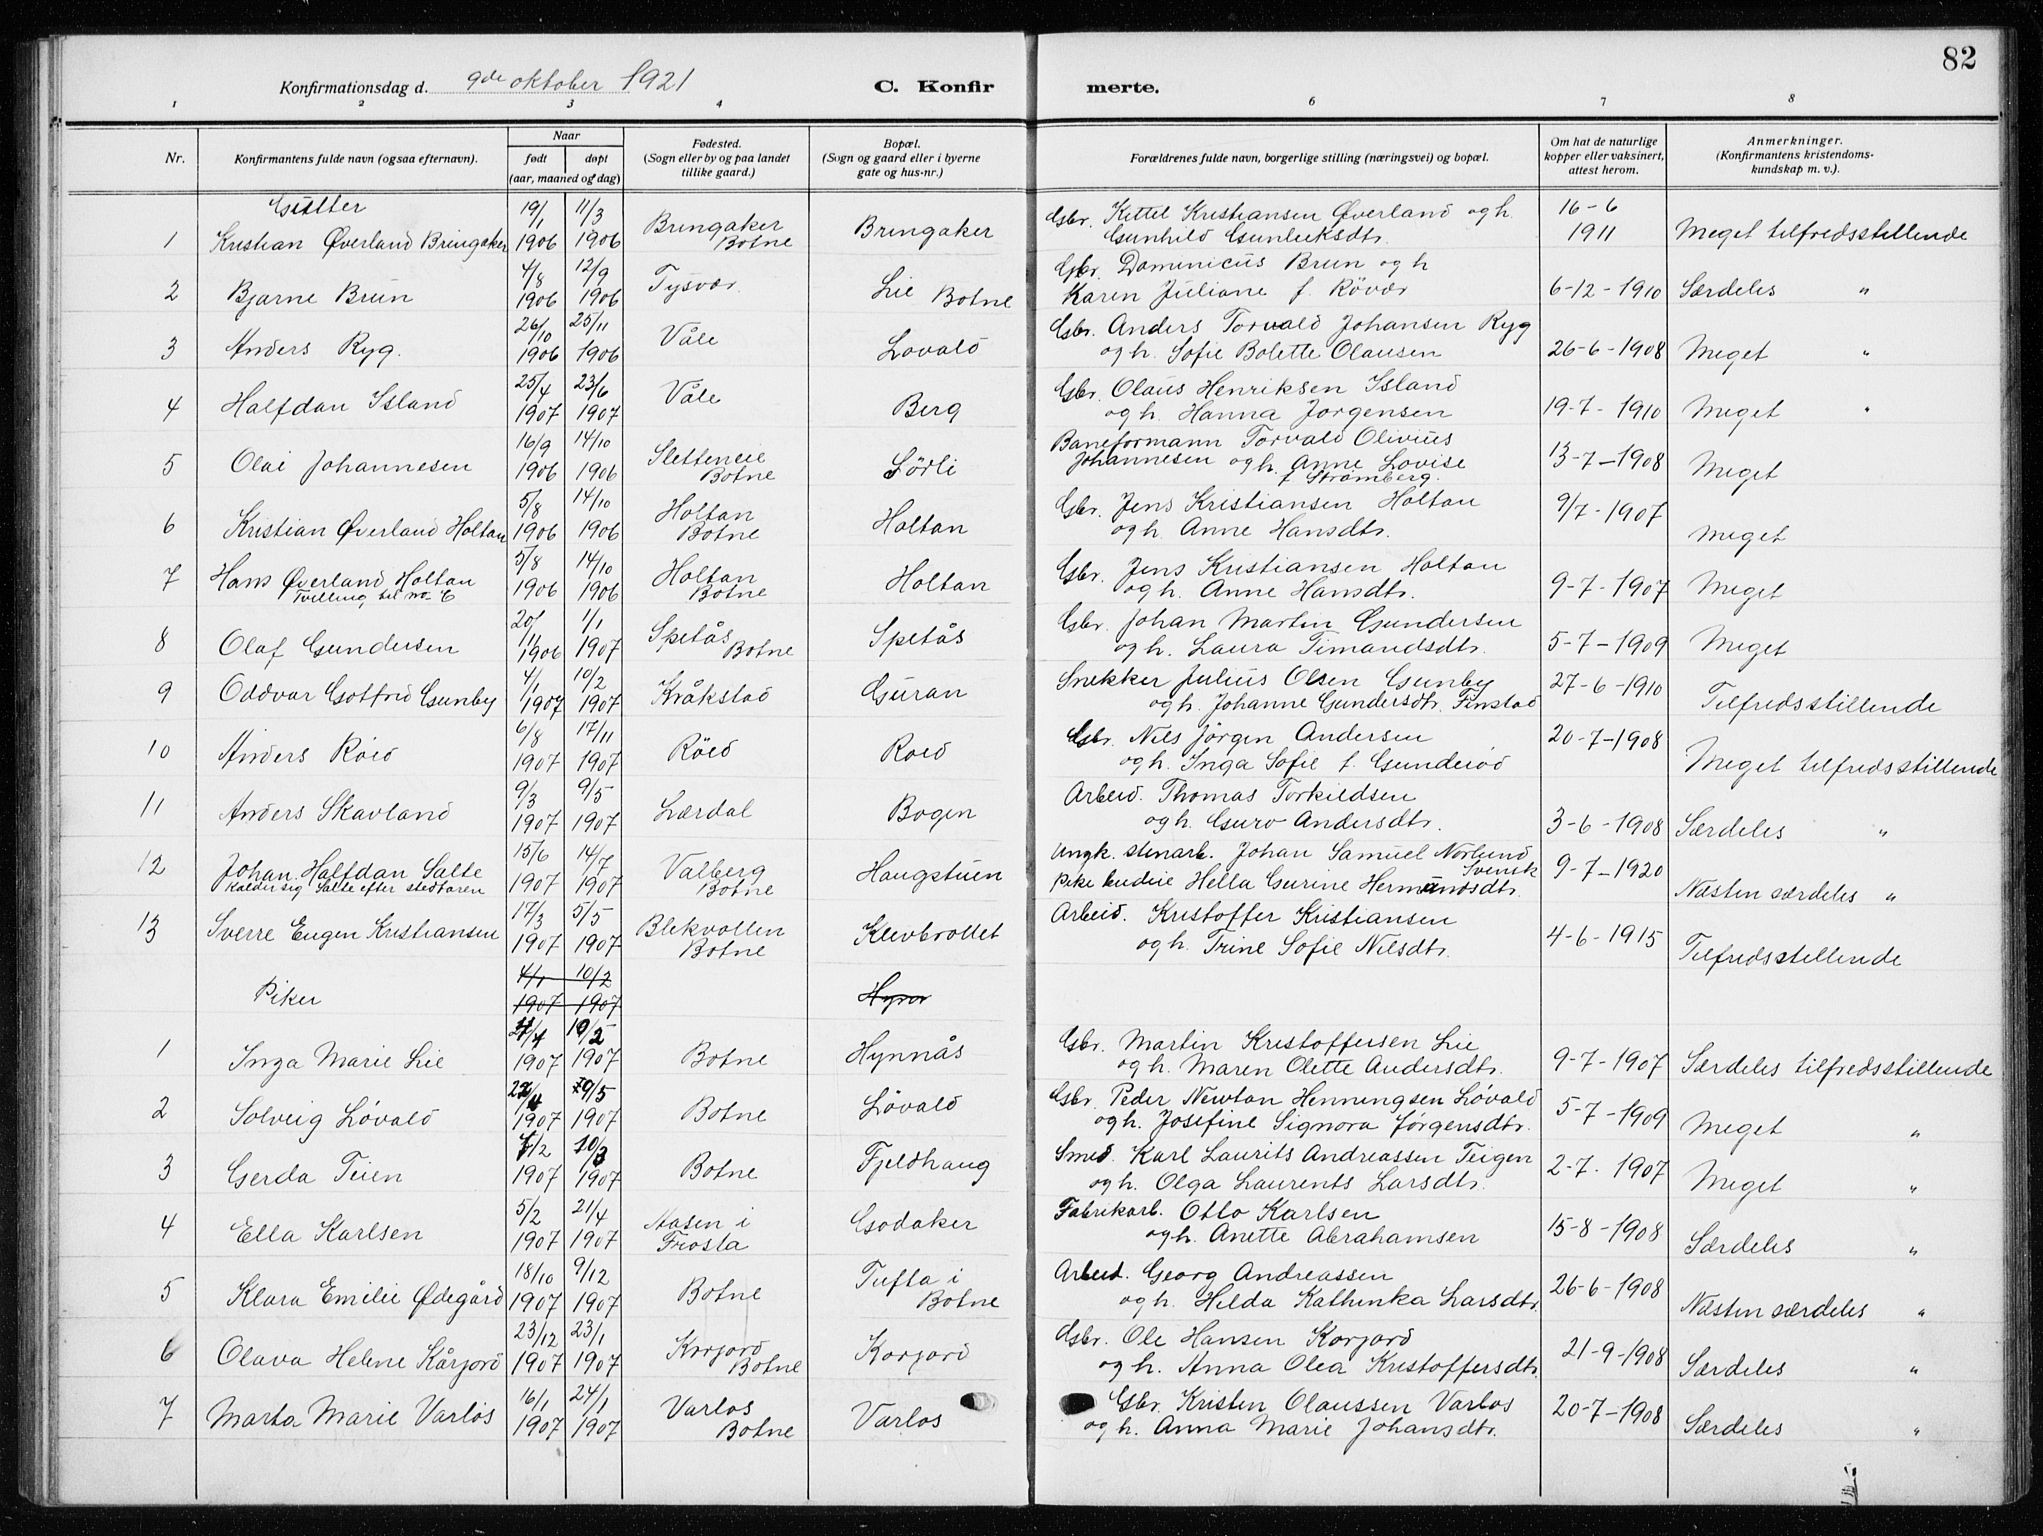 82
Konfirmationsdag d. 9de oktober 1921 C. Konfir merte.
1 2 3 4 6 7 8
Nr. Konfirmantens fulde navn (ogsaa efternavn). Naar født døpt (aar, maaned og dag) Fødested. (Sogn eller by og paa landet tillike gaard.) Bopæl. (Sogn og gaard eller i byerne gate og hus-nr.) Forældrenes fulde navn, borgerlige stilling (næringsvei) og bopæl. Om hat de naturlige kopper eller vaksinert, attest herom. Anmerkninger. (Konfirmantens kristendomskundskap m. v.).
Gutter
1 Kristian Øverland Bringaker 19/1 1906 11/3 1906 Bringaker Botne Bringaker Gbr. Kittel Kristiansen Øverland og h. Gunhild Gunleiksdtr. 16-6 1911 Meget tilfredsstillende
2 Bjarne Brun 4/8 1906 12/9 1906 Tysvær Lie Botne Gbr. Dominicus Brun og h Karen Juliane f. Røvær 6-12-1910 Særdeles "
3 Anders Ryg. 26/10 1906 25/11 1906 Våle Lovald Gbr. Anders Torvald Johansen Ryg og h. Sofie Bolette Olausen 26-6-1908 Meget "
4 Halfdan Island 25/4 1907 23/6 1907 Våle Berg Gbr. Olaus Henriksen Island og h. Hanna Jorgensen 19-7-1910 Meget "
5 Olai Johannesen 16/9 1906 14/10 1906 Sletteneie Botne Lörli Baneformann Torvald Olivius Johannesen og h. Anne Lovise f. Strømberg. 13-7-1908 Meget
6 Kristian Øverland Holtan 5/8 1906 14/10 1906 Holtan Botne Holtan Gbr. Jens Kristiansen Holtan og h. Anne Hansdtr. 9/7-1907 Meget
7 Hans Øverland Holtan Tvilling til no. 6 5/8 1906 14/10 1906 Holtan Botne Holtan Gbr. Jens Kristiansen Holtan og h. Anne Hansdtr. 9-7-1907 Meget
8 Olaf Gundersen 20/11 1906 1/1 1907 Spetås Botne Spetås Gbr. Johan Martin Gundersen og h. Laura Timandsdtr. 5-7-1909 Meget
9 Oddvar Gotfrid Gunby 4/1 1907 10/2 1907 Kråkstad Guran Snekker Julius Olsen Gunby og h. Johanne Gundersdtr. Finstad 27-6-1910 Tilfredsstillende
10 Anders Röed 6/8 1907 17/11 1907 Röed Roed Gbr. Nils Jörgen Andersen og h. Inga Sofie f. Gunderöd 20-7-1908 Meget tilfredsstillende
11 Anders Skavland 9/3 1907 9/5 1907 Lærdal Bogen Arbeid. Thomas Torkildsen og h. Guro Andersdtr. 3-6-1908 Særdeles "
12 Johan Halfdan Salte Kalder sig Salte efter stedfaren 15/6 1907 14/7 1907 Valberg Botne Haugstuen Ungk. stenarb. Johan Samuel Norlund Svensk Pike budeie Hella Gurine Hermundsdtr. 9-7-1920 Næsten særdeles "
13 Sverre Eugen Kristiansen 17/3 1907 5/5 1907 Blekvollen Botne Klevbrottet Arbeid. Kristoffer Kristiansen og h. Trine Sofie Nilsdtr. 4-6-1915 Tilfredsstillende
Piker 4/1 1907 10/2 1907
1 Inga Marie Lie 1907 1907 Botne Hynnås Gbr. Martin Kristoffersen Lie og h. Maren Olette Andersdtr. 9-7-1907 Særdeles tilfredsstillende
2 Solveig Lövald 1907 1907 Botne Lövald Gbr. Peder Newton Henningsen Lövald og h. Josefine Signora Jörgensdtr. 5-7-1909 Meget "
3 Gerda Teien 1907 1907 Botne Fjeldhaug Smed. Karl Laurits Andreassen Teigen og h. Olga Laurents Larsdtr. 2-7-1907 Meget "
4 Ella Karlsen 5/2 1907 21/4 1907 Aasen i Frosta Godaker Fabrikarb. Otto Karlsen og h. Anette Abrahamsen 15-8-1908 Særdeles "
5 Klara Emilie Ødegård 18/10 1907 9/12 1907 Botne Tufta i Botne Arbeid. Georg Andreassen og h. Hilda Kathinka Larsdtr. 26-6-1908 Næsten særdeles "
6 Olava Helene Kårjord 23/12 1907 23/1 1907 Korjord Botne Korjord Gbr. Ole Hansen Korjord og h. Anna Olea Kristoffersdtr. 21-9-1908 Særdeles "
7 Marta Marie Varlos 16/1 1907 24/1 1907 Varlos Botne Varlos Gbr. Kristen Olaussen Varlos og h. Anna Marie Johansdtr. 20-7-1908 Særdeles "